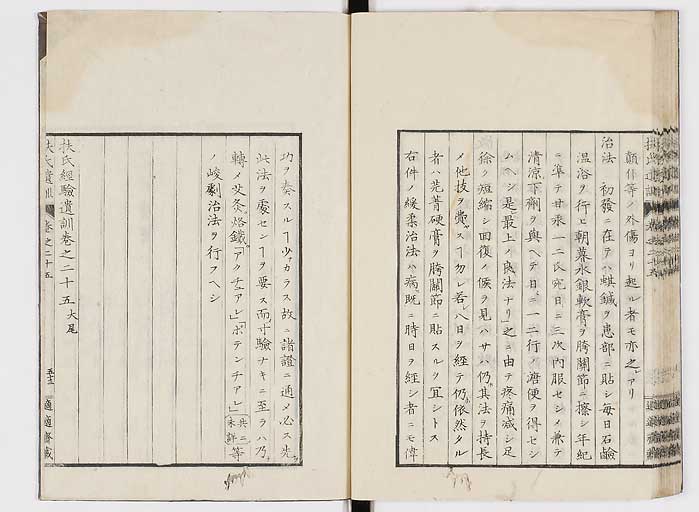 顛仆等ノ外傷ヨリ起ル者モ亦之アリ
治法 初發ニ在テハ蜞鍼ヲ患部ニ貼シ毎日石鹼
温浴ヲ行ヒ朝暮水銀軟膏ヲ胯關節ニ擦シ年紀
ニ準テ甘汞一二氏宛日ニ三次内服セシメ兼テ
清涼下劑ヲ與ヘテ日ニ一二行ノ溏便ヲ得セシ
ムヘシ是最上ノ良法ナリ之ニ由テ疼痛減シ足
徐ク短縮シ回復ノ候ヲ見ハサハ仍其法ヲ持長
メ他技ヲ要スヿ勿レ若八日ヲ經テ仍依然タル
者ハ芫菁硬膏ヲ胯關節ニ貼スルヲ宜シトス
右件ノ緩柔治法ハ病既ニ時日ヲ經シ者ニモ偉
功ヲ奏スルヿ少カラス故ニ諸證ニ通メ必ス先
此法ヲ處センヿヲ要ス而寸驗ナキニ至ラハ乃
轉メ艾灸烙鐵「アクチュアレ」「ポテンチアレ」共ニ未詳等
ノ峻劇治法ヲ行フヘシ
扶氏經驗遺訓卷之二十五大尾
扶氏遺訓 卷之二十五
適適齋藏